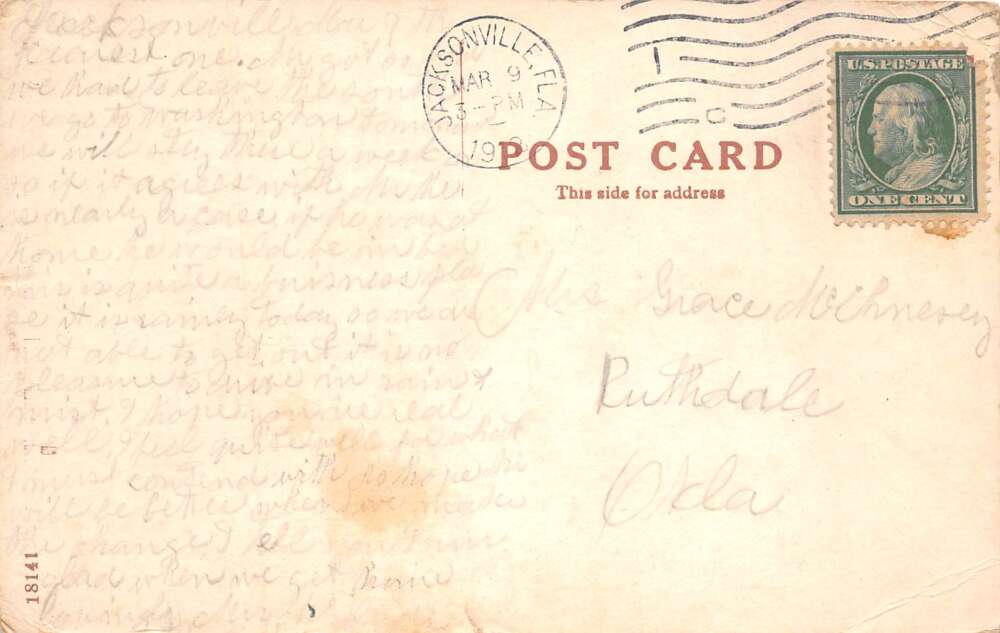 Jacksonville Mar 9 th
Dearest one.
we have to leave the
go to Washington tomorrow
we will stay there a week
so if it agrees with
is nearly a case if he was at
home he would be in bed
this is quite a buisness pla
ce it is rainey today so we are
not able to get out it is no
pleasure to in rain &
mist. I hope you are real
well, I feel quite well for what
I must contend with so hope he
will be better when we make
the change I tell you I am
glad when we get home
JACKSONVILLE, FLA.
MAR 9
3-PM
POST CARD
This side for address
U.S. POSTAGE
ONE CENT
Mrs Grace
Ruthdale
Okla
18141